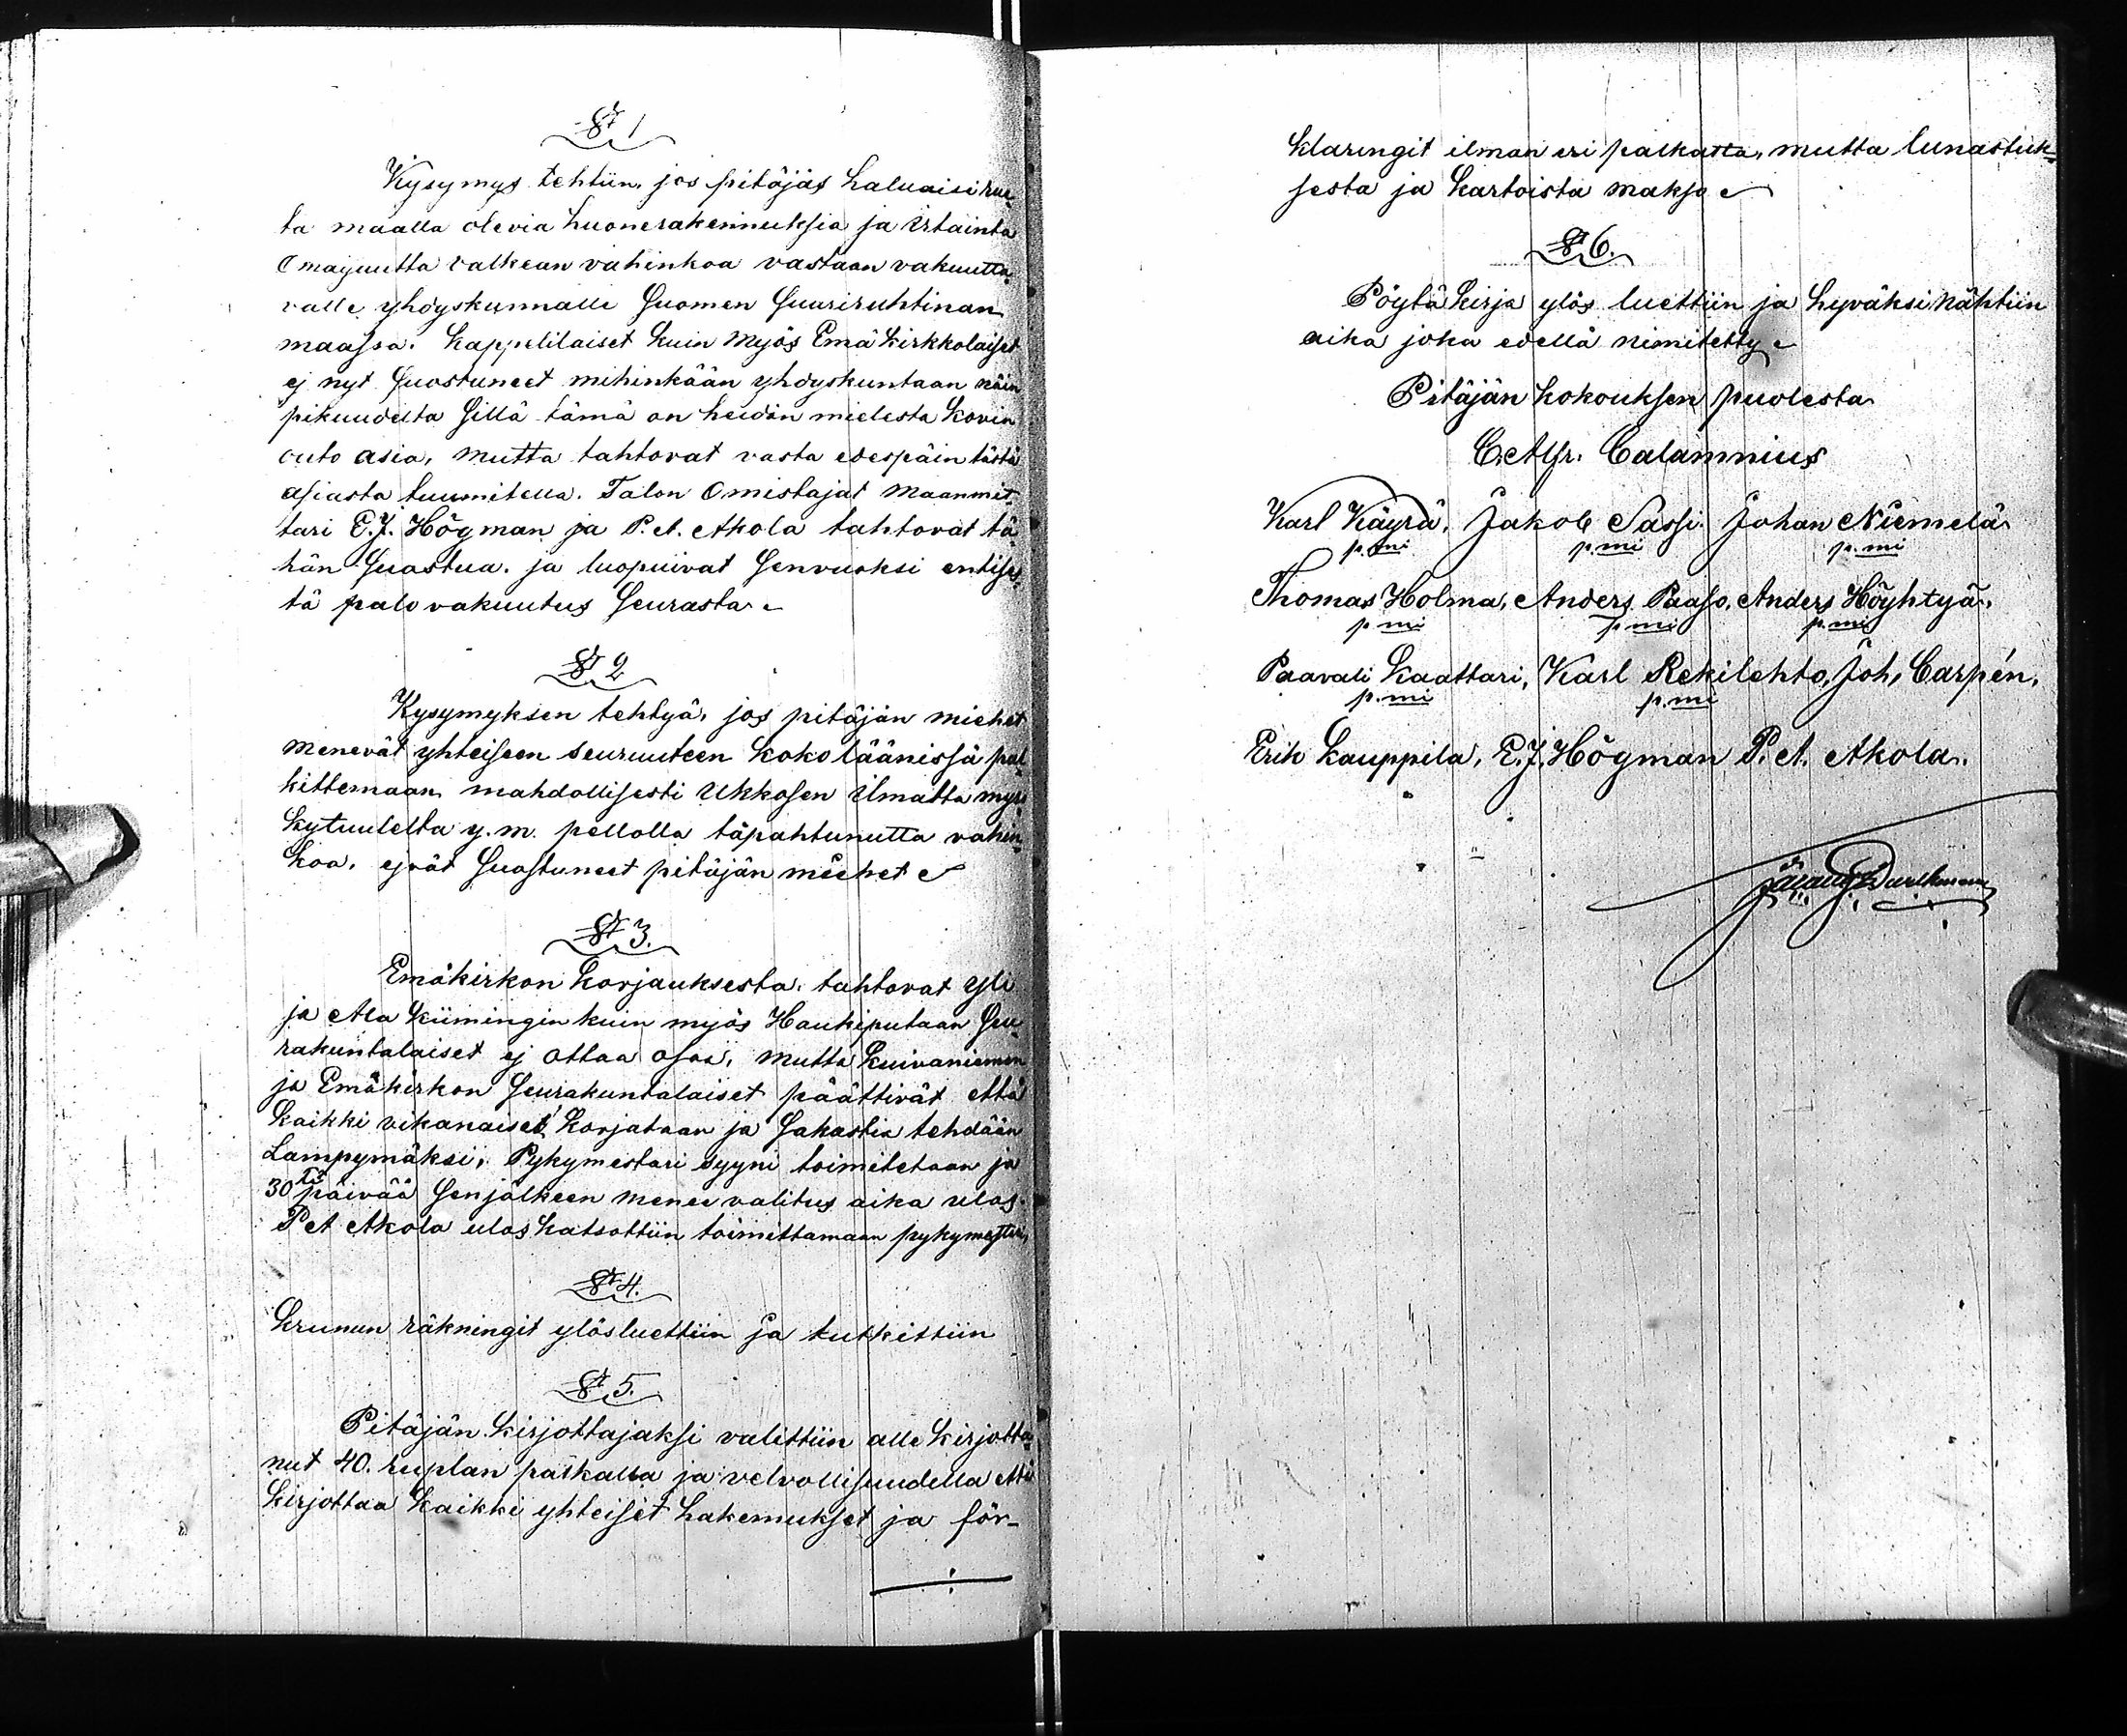 § 1
Kysymys tehtiin, jos pitäjäs haluaisi ruv
ta maalla olevia huonerakennuksia ja irtainta
Omaisuutta valkean vahinkoa vastaan vakuutta
valle yhdyskunnalle Suomen Suuriruhtinan
maassa. Kappelilaiset kuin myös Emä kirkkolaiset
ej nyt Suostuneet mihinkään yhdyskuntaan näin
pikuudelta Sillä tämä on heidän mielestä kovin
outo asia, mutta tahtovat vasta edespäin tästä
asiasta tuumitella. Talon Omistajat Maanmit
tari E.J. Högman ja P. A. Akola tahtovat tä
hän Suostua. ja luopuivat Senvuoksi entises
tä palovakuutus Seurasta
§ 2
Kysymyksen tehtyä, jos pitäjän miehet
menevät yhteiseen seuruuteen koko läänissä pal
kittemaan mahdollisesti Ukkosen ilmatta myrs
kytuulelta y.m. pellolla tapahtunutta vahin
koa, ejvät Suostuneet pitäjän miehet
§ 3.
Emäkirkon korjauksesta, tahtovat Yli
ja Ala Kiimingin kuin myös Haukiputaan Seu
rakuntalaiset ej ottaa osaa, mutta Kuivaniemen
ja Emäkirkon Seurakuntalaiset päättivät että
kaikki vikanaiset korjataan ja Sakastia tehdään
Lampymäksi, Pykymestari syyni toimitetaan ja
30 tä päivää Senjälkeen menee valitus aika ulos.
P A Akola ulos katsottiin toimittamaan pykymestari,
§ 4.
Krunun räkningit ylösluettiin ja tutkittiin
§ 5.
Pitäjän kirjottajaksi valittiin alle kirjotta
nut 40. ruplan palkalla ja velvollisuudella että
kirjottaa kaikki yhteiset hakemukset ja för-
klaringit ilman eri palkatta, mutta lunastuk
sesta ja kartoista makso
§ 6.
Pöytäkirja ylös luettiin ja hyväksi nähtiin
aika joka edellä nimitetty
Pitäjän kokouksen puolesta
C. Alfr. Calamnius
Karl Käyrä, Jakob Sassi. Johan Niemelä
p. mi p. mi p. mi
Thomas Holma, Anders Paaso, Anders Höyhtyä,
p. mi p. mi p. mi
Paavali Kaattari, Karl Rekilehto, Joh, Carpén,
p. mi p. mi
Erik Kauppila, E.J. Högman P. A. Akola.